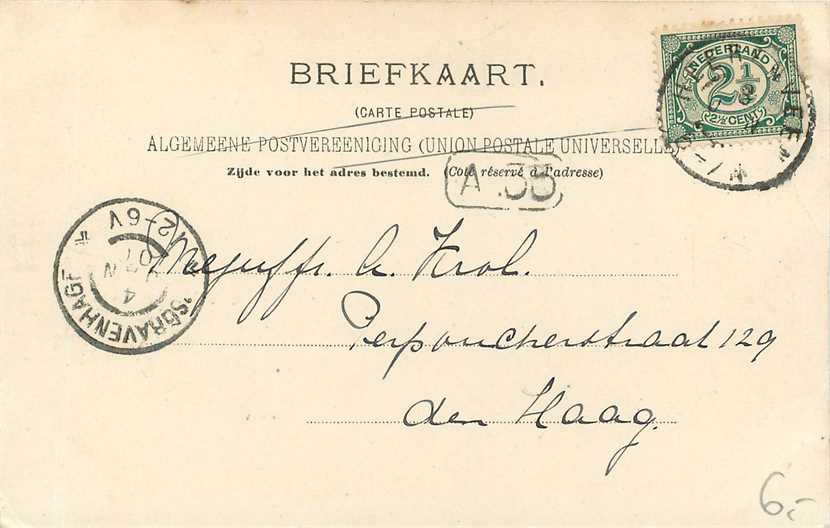 BRIEFKAART.
(CARTE POSTALE)
ALGEMEENE POSTVEREENIGING (UNION POSTALE UNIVERSELLE)
Zijde voor het adres bestemd. (Coté réservé à l'adresse)
NEDERLAND
2½
2½ CENT
A .35
'SGRAVENHAGE
4
07
2-6V
Mejuffr. A. Krol.
Perponcherstraat 129
den Haag.
6,-